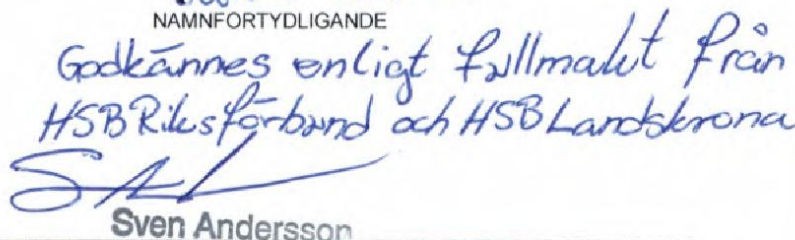 NAMNFORTYDLIGANDE
Godkännes enligt fullmakt från
HSB Riksförbund och HSB Landskrona
Sven Andersson